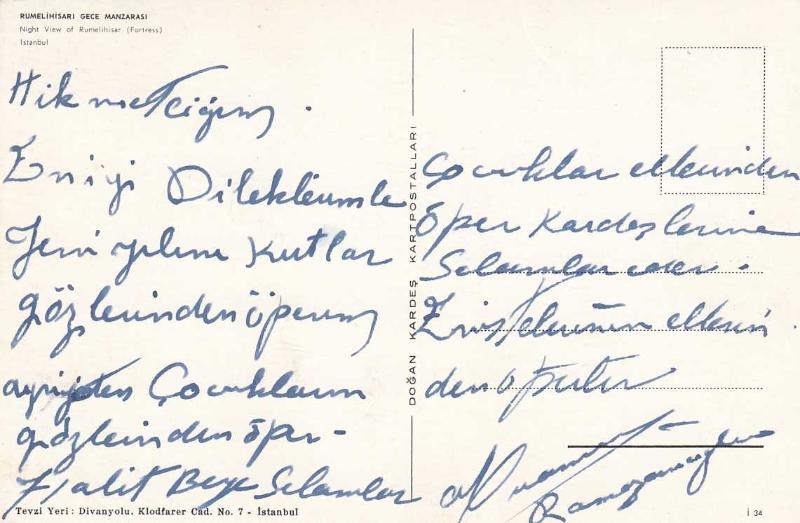 RUMELİHİSARI GECE MANZARASI
Night View of Rumelihisar (Fortress)
İstanbul
Hikmetciğim.
En iyi Dileklerimle
Yeni yılını Kutlar
gözlerinden öperim
ayrıyeten Çocukların
gözlerinden öper-
Halit Beye Selamlar
DOĞAN KARDEŞ KARTPOSTALLARI
Çocuklar ellerinden
öper Kardeşlerine
Selamlar eder.
Enistelerinin ellerin
den öperler
Ramazanoğlu
Tevzi Yeri : Divanyolu, Klodfarer Cad. No. 7 - İstanbul
İ 34